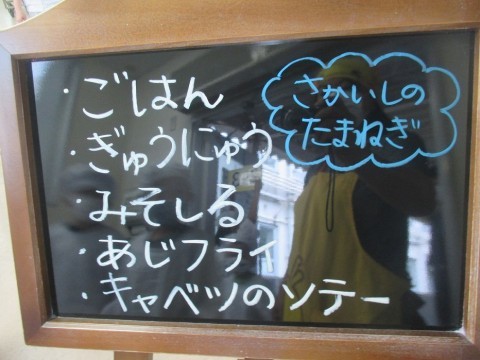 ・ごはん
・ぎゅうにゅう
・みそしる
・あじフライ
・キャベツのソテー
さかいしの
たまねぎ